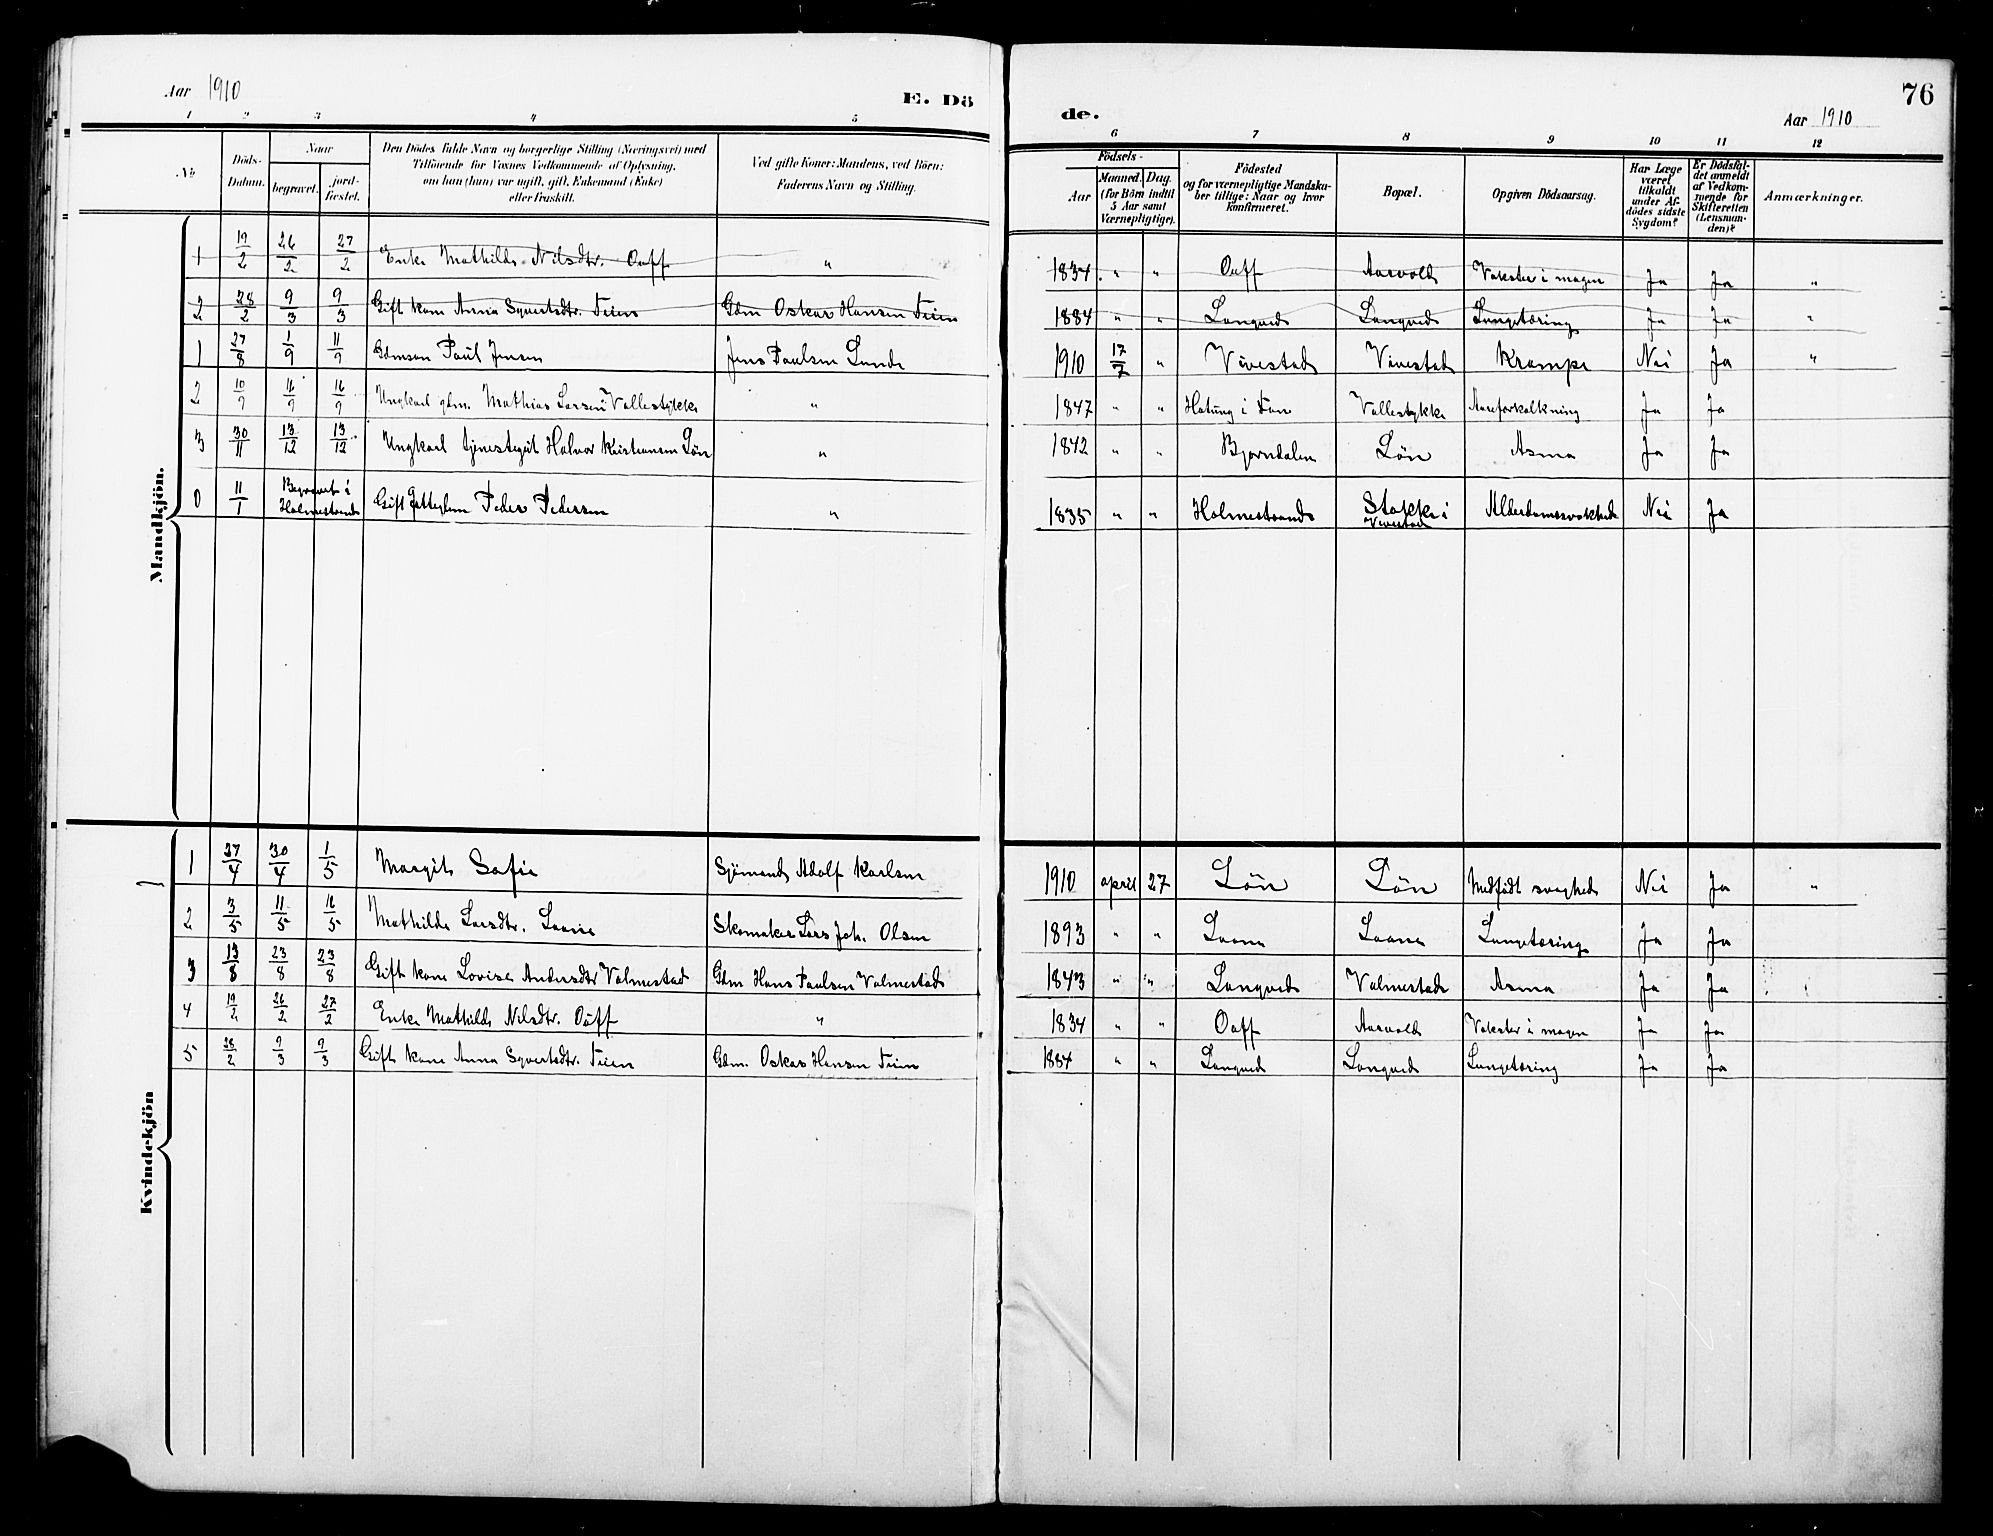 Aar 1910
E. Dö
de.
76
Aar 1910
1 2 3 4 5 6 7 8 9 10 11 12
№ Döds-Datum. Naar begravet. jord-fæstet. Den Dödes fulde Navn og borgerlige Stilling (Næringsvei) med Tilföiende for Voxnes Vedkommende af Oplysning, om han (hun) var ugift, gift, Enkemand (Enke) eller fraskilt. Ved gifte Koner: Mandens, ved Börn: Faderens Navn og Stilling. Födsels- Aar Maaned. Dag. (for Börn indtil 5 Aar samt Værnepligtige). Födested og for værnepligtige Mandskaber tillige: Naar og hvor konfirmeret. Bopæl. Opgiven Dödsaarsag. Har Læge været tilkaldt under Afdödes sidste Sygdom? Er Dödsfaldet anmeldt af Vedkommende for Skifteretten (Lensmanden)? Anmærkninger.
Mandkjön.
1 19/2 26/2 27/2 Enke Mathilde Nilsdtr. Oaff " 1834 " " Oaff Aarvold Vækster i magen Ja Ja "
2 28/2 9/3 9/3 Gift kone Anna Syvertsdtr. Feien Gdm Oskar Hansen Feien 1884 " " Langved Langved Lungetæring Ja Ja "
1 27/8 1/9 11/9 Gdmsøn Paul Jensen Jens Paulsen Lunde 1910 17/7 " Vivestad Vivestad Krampe Nei Ja "
2 10/9 16/9 16/9 Ungkarl gdm. Mathias Larsen Vallestykke " 1847 " " i Vallestykke Aareforkalkning Ja Ja
3 30/11 13/12 13/12 Ungkarl tjenestegut Halvor Kristiansen Løn " 1842 " " Bjørndalen Løn Asma Ja Ja
0 11/1 Begravet i Holmestrand Gift Peder Pedersen " 1835 " " Holmestrand Stokke i Vivestad Alderdomssvakhed Nei Ja
Kvindekjön
1 27/4 30/4 1/5 Margit Sofie Sjømand Adolf Karlsen 1910 april 27 Løn Løn Medfødt svaghed Nei Ja "
2 3/5 11/5 16/5 Mathilde Larsdtr. Laane Skomaker Lars Joh. Olsen 1893 " " Laane Laane Lungetæring Ja Ja
3 13/8 23/8 23/8 Gift kone Lovise Andersdtr Valmestad Gdm Hans Paulsen Valmestad 1843 " " Langved Valmestad Asma Ja Ja
4 19/2 26/2 27/2 Enke Mathilde Nilsdtr. Oaff " 1834 " " Oaff Aarvold Vækster i magen Ja Ja
5 28/2 9/3 9/3 Gift kone Anna Syvertsdtr. Feien Gdm. Oskar Hansen Feien 1884 " " Langved Langved Lungetæring Ja Ja